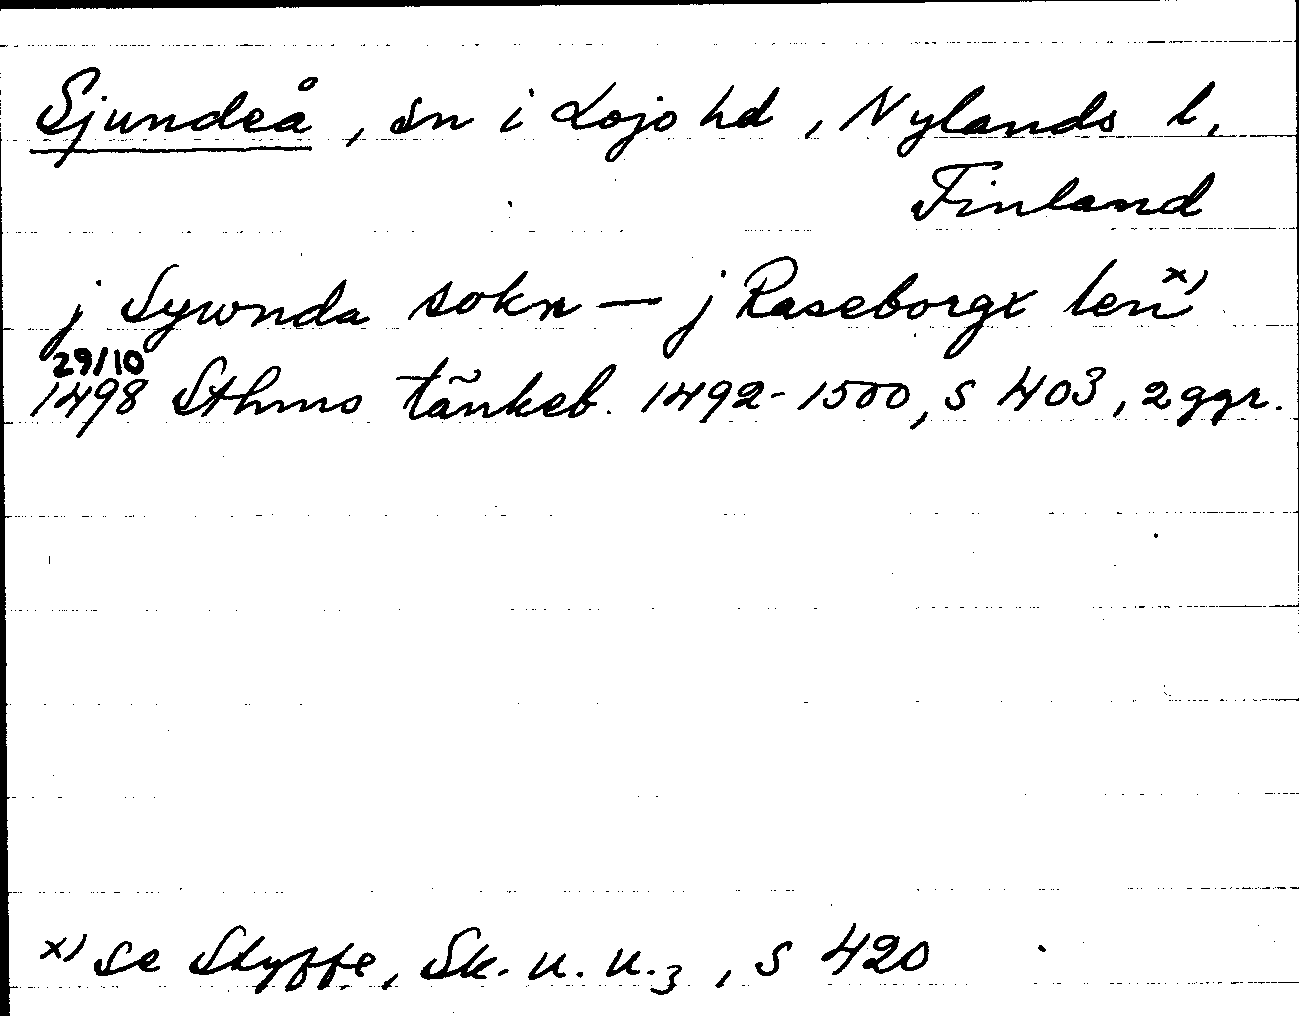 Sjundeå, sn i Lojo hd, Nylands l,
Finland
j Sywnda sokn — j Raseborgx len x)
29/10
1498 Sthms tänkeb. 1492-1500, s 403, 2 ggr.
x) se Styffe, Sk. u. u.3, s 420